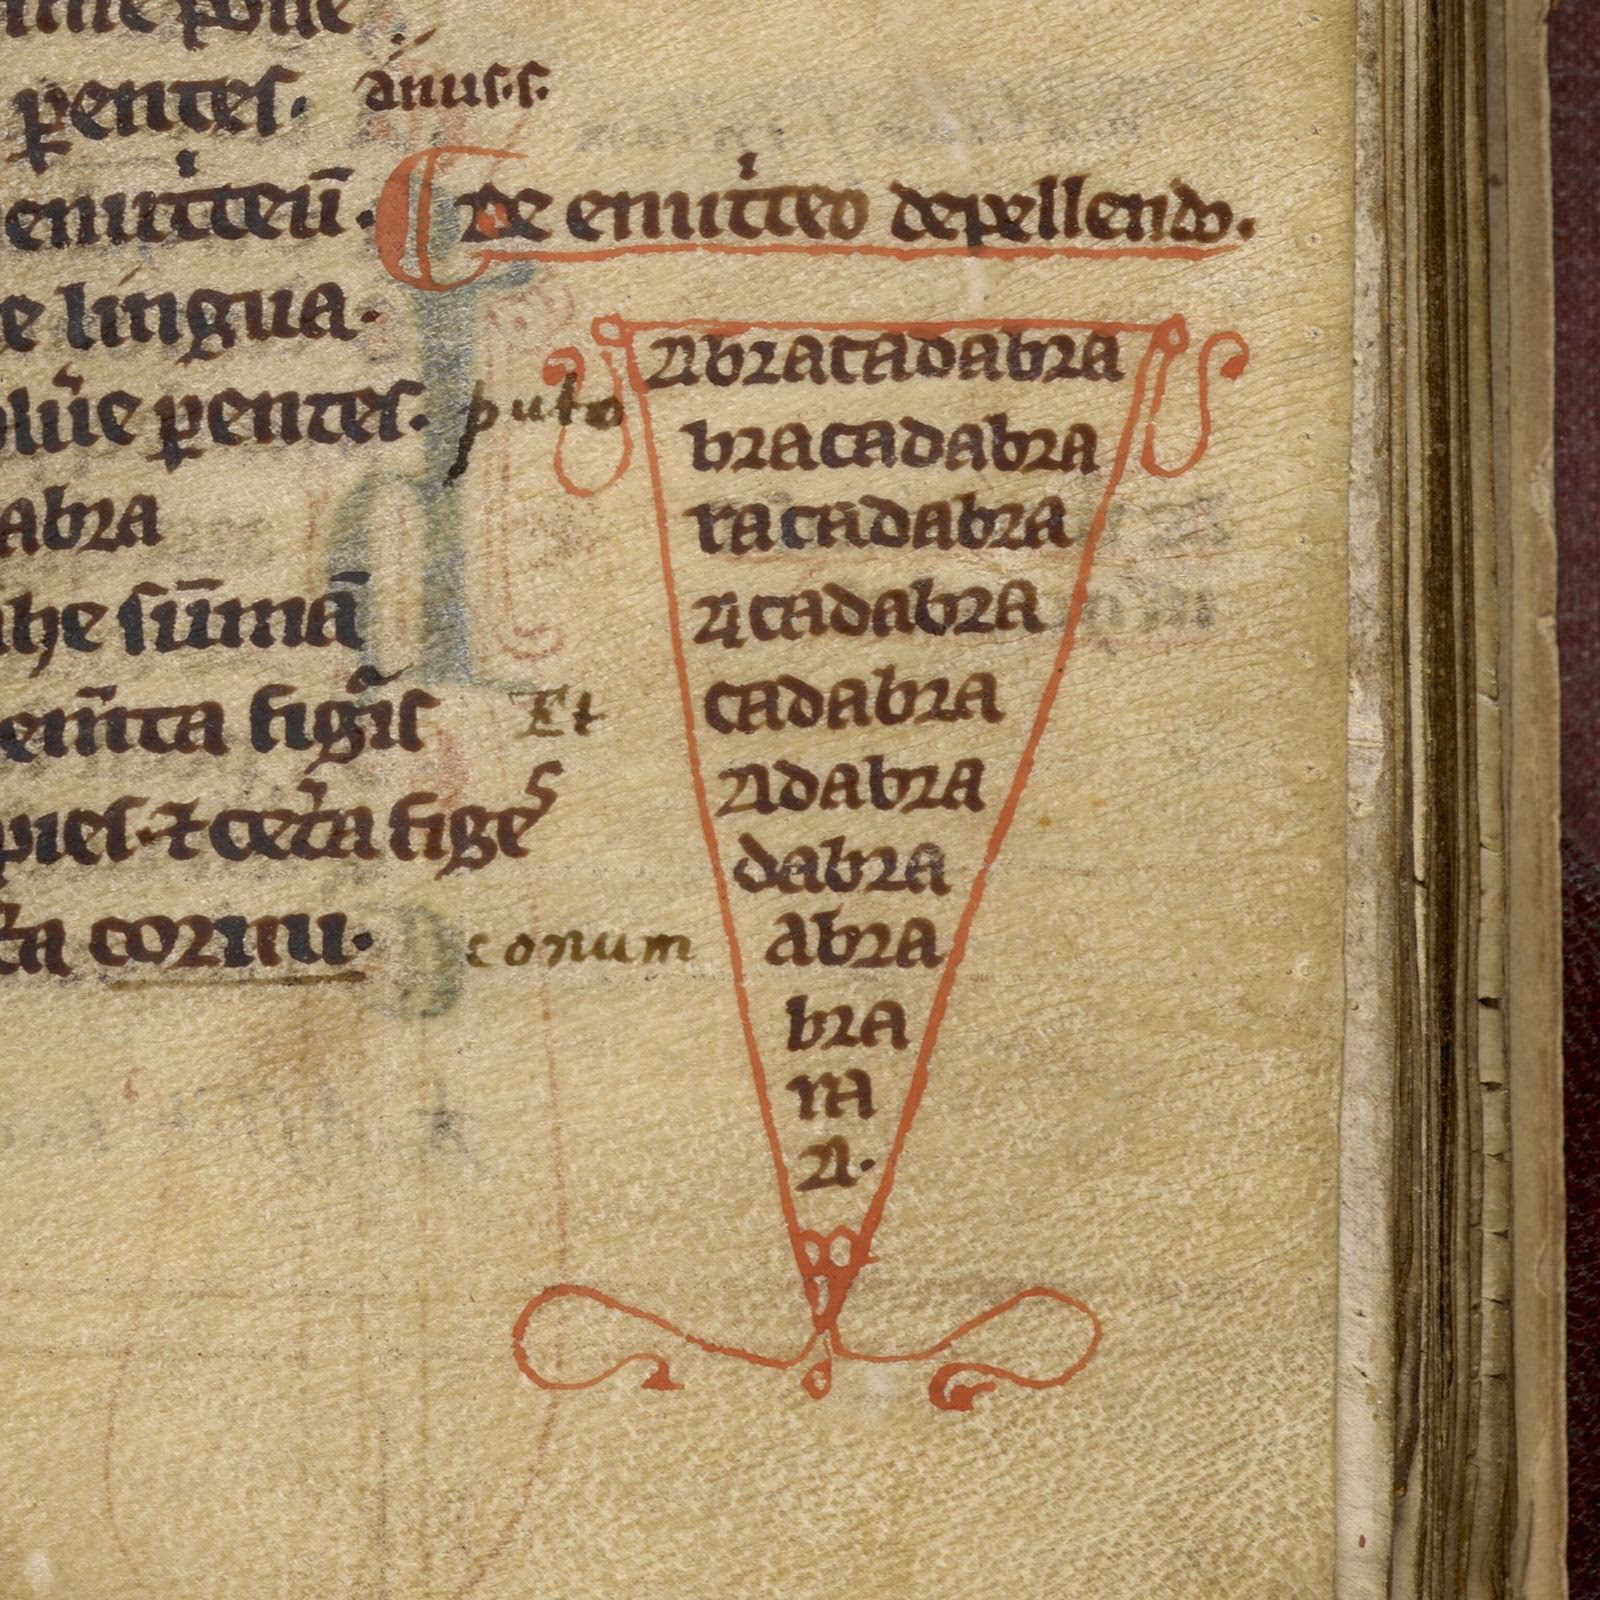 ꝑentes. anus.s.
emitteū. de emitteo depellendo.
e lingua.
ꝑentes. puto
abra
he sūmā
figis Et
cornu. conum
Abracadabra
bracadabra
racadabra
Acadabra
cadabra
Adabra
dabra
abra
bra
ra
A.